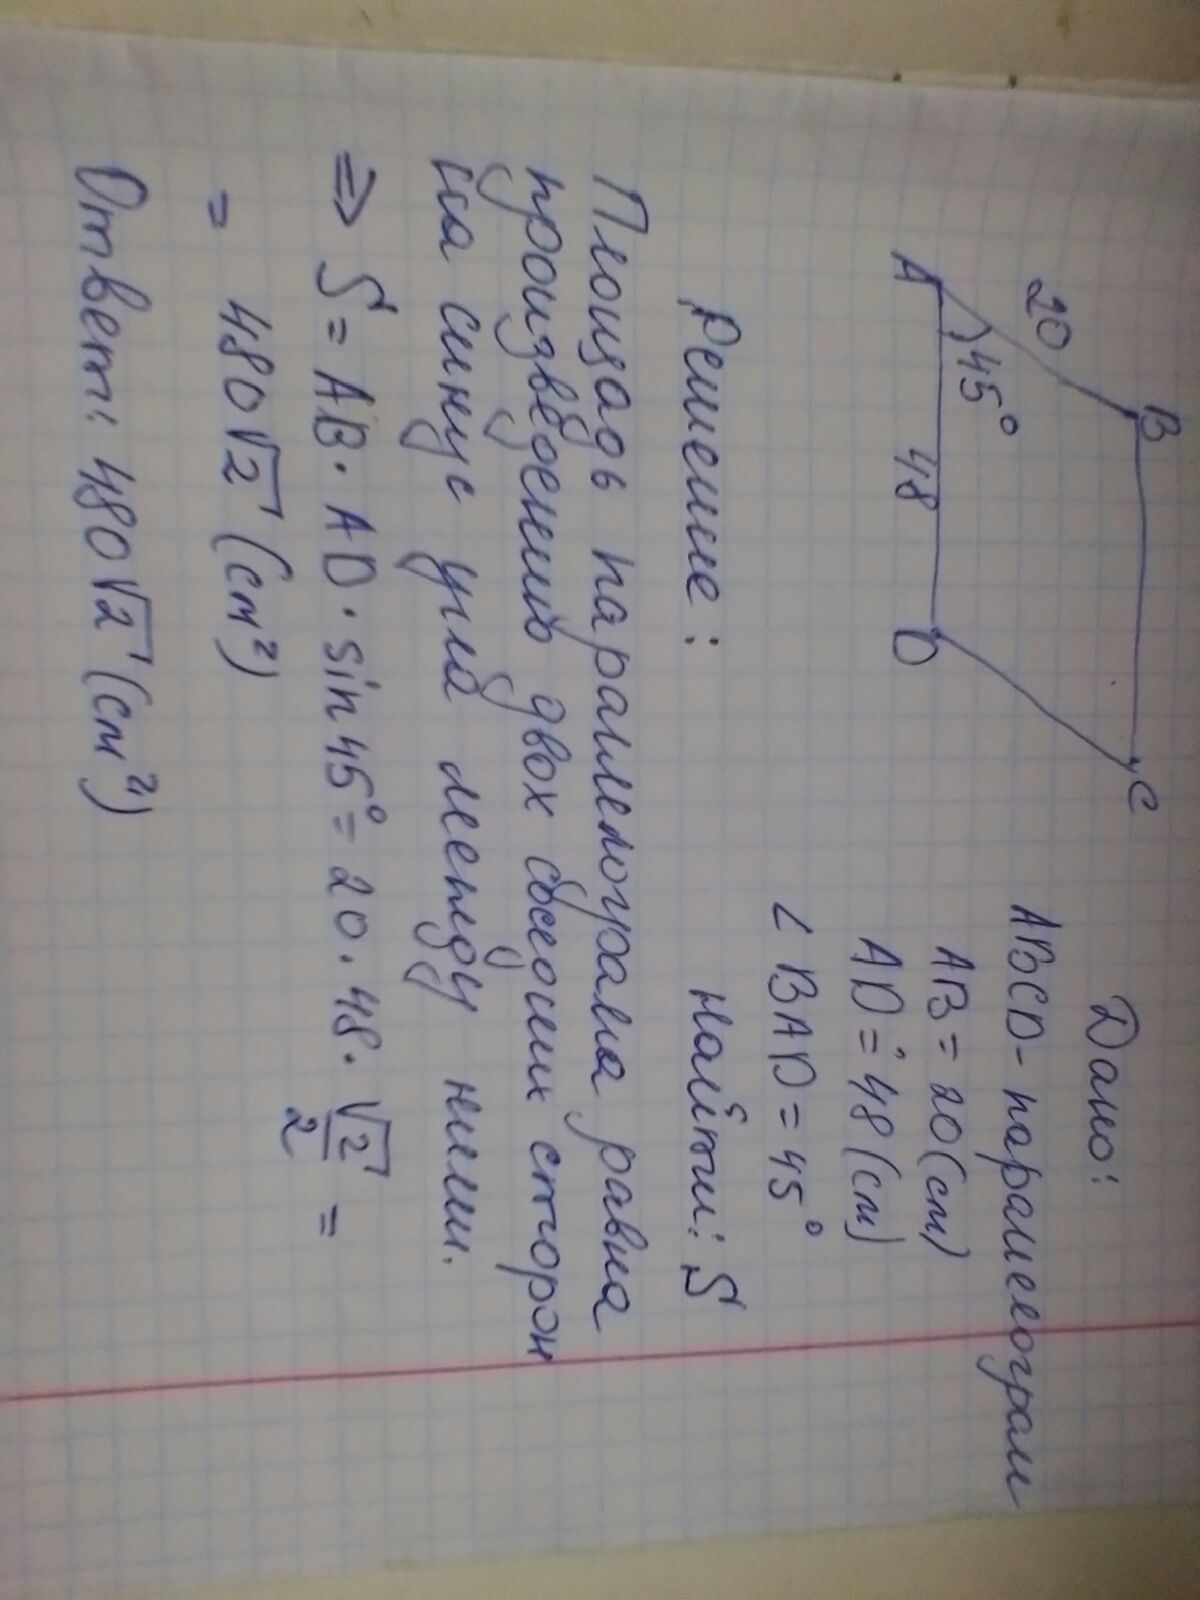 Дано:
ABCD - паралелограм
AB = 20 (см)
AD = 48 (см)
∠ BAD = 45°
Найти: S
B
C
20
45°
A
48
D
Решение:
Площадь паралелограма равна
произведению двох сбседних сторон
на синус угла между ними.
⇒ S = AB · AD · sin 45° = 20 · 48 · √2/2 =
= 480√2 (см²)
Ответ: 480√2 (см²)